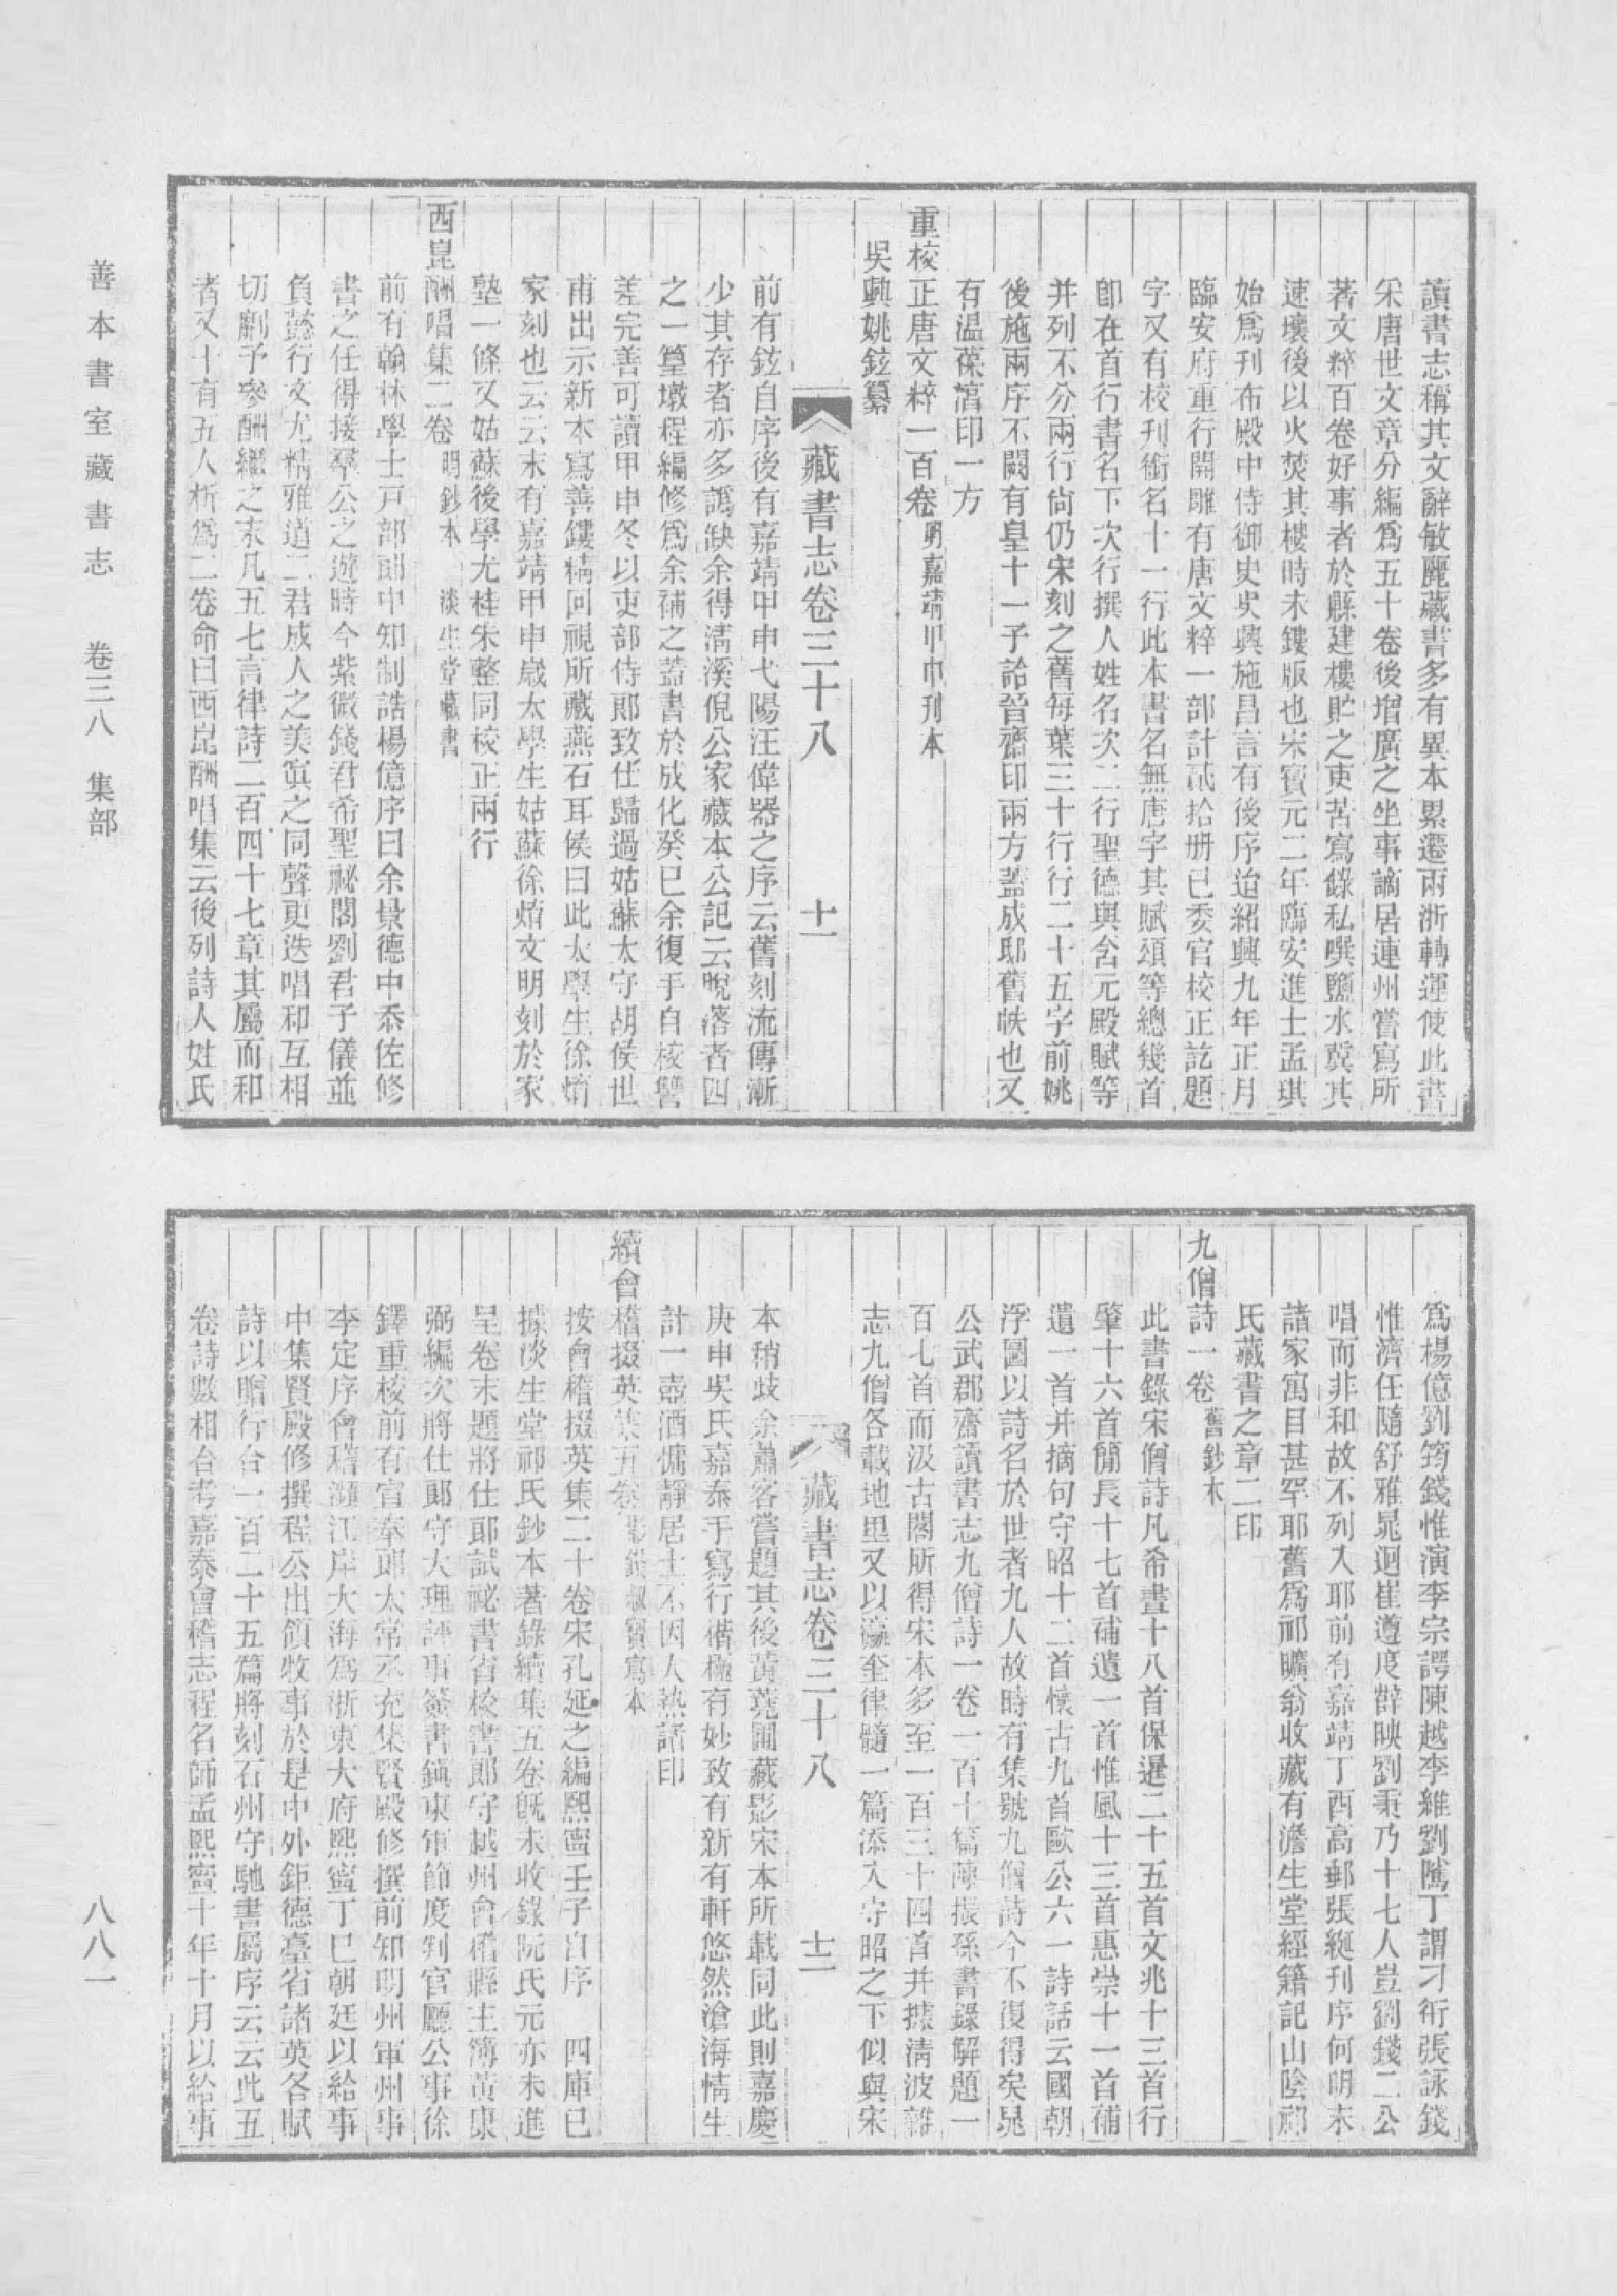 讀書志稱其文辭敏麗藏書多有異本累遷兩浙轉運使此書
采唐世文章分編爲五十卷後增廣之坐事謫居連州嘗寫所
著文粹百卷好事者於縣建樓貯之吏苦寫錄私噀鹽水冀其
速壞後以火焚其樓時未鏤版也宋寶元二年臨安進士孟琪
始爲刊布殿中侍御史史興施昌言有後序迨紹興九年正月
臨安府重行開雕有唐文粹一部計貳拾册已委官校正訖題
字又有校刊銜名十一行此本書名無唐字其賦頌等總幾首
卽在首行書名下次行撰人姓名次三行聖德與含元殿賦等
并列不分兩行尙仍宋刻之舊每葉三十行行二十五字前姚
後施兩序不闕有皇十一子詒晉齋印兩方蓋成邸舊帙也又
有温葆淳印一方
重校正唐文粹一百卷 明嘉靖甲申刊本
吳興姚鉉纂
藏書志卷三十八 十一
前有鉉自序後有嘉靖甲申弋陽汪偉器之序云舊刻流傳漸
少其存者亦多譌缺余得淸溪倪公家藏本公記云脫落者四
之一篁墩程編修爲余補之蓋書於成化癸巳余復手自校讐
差完善可讀甲申冬以吏部侍郞致仕歸過姑蘇太守胡侯世
甫出示新本寫善鏤精回視所藏燕石耳侯曰此太學生徐焴
家刻也云云末有嘉靖甲申歲太學生姑蘇徐焴文明刻於家
塾一條又姑蘇後學尤桂朱整同校正兩行
西崑酬唱集二卷 明鈔本 淡生堂藏書
前有翰林學士戸部郞中知制誥楊億序曰余景德中忝佐修
書之任得接羣公之遊時今紫微錢君希聖祕閣劉君子儀並
負懿行文尤精雅道二君成人之美寘之同聲更迭唱和互相
切劘予參酬繼之末凡五七言律詩二百四十七章其屬而和
者又十有五人析爲二卷命曰西崑酬唱集云後列詩人姓氏
爲楊億劉筠錢惟演李宗諤陳越李維劉隲丁謂刁衎張詠錢
惟濟任隨舒雅晁迥崔遵度薛映劉秉乃十七人豈劉錢二公
唱而非和故不列入耶前有嘉靖丁酉高郵張綖刊序何明末
諸家寓目甚罕耶舊爲祁曠翁收藏有澹生堂經籍記山陰祁
氏藏書之章二印
九僧詩一卷 舊鈔本
此書錄宋僧詩凡希晝十八首保暹二十五首文兆十三首行
肇十六首簡長十七首補遺一首惟風十三首惠崇十一首補
遺一首并摘句守昭十二首懷古九首歐公六一詩話云國朝
浮圖以詩名於世者九人故時有集號九僧詩今不復得矣晁
公武郡齋讀書志九僧詩一卷一百十篇陳振孫書錄解題一
百七首而汲古閣所得宋本多至一百三十四首并據淸波雜
志九僧各載地里又以瀛奎律髓一篇添入守昭之下似與宋
藏書志卷三十八 十二
本稍歧余蕭客嘗題其後黃蕘圃藏影宋本所載同此則嘉慶
庚申吳氏嘉泰手寫行楷極有妙致有新有軒悠然滄海情生
計一壺酒慵靜居士不因人熱諸印
續會稽掇英集五卷 寫本
按會稽掇英集二十卷宋孔延之編熙寧壬子自序 四庫已
據淡生堂祁氏鈔本著錄續集五卷旣未收錄阮氏元亦未進
呈卷末題將仕郞試祕書省校書郞守越州會稽縣主簿黃康
弼編次將仕郞守大理評事簽書鎭東軍節度判官廳公事徐
鐸重校前有官奉郞太常丞充集賢殿修撰前知明州軍州事
李定序會稽瀕江岸大海爲浙東大府熙寧丁巳朝廷以給事
中集賢殿修撰程公出領牧事於是中外鉅德臺省諸英各賦
詩以贈行合一百二十五篇將刻石州守馳書屬序云云此五
卷詩數相合考嘉泰會稽志程名師孟熙寧十年十月以給事
善本書室藏書志 卷三八 集部
八八一